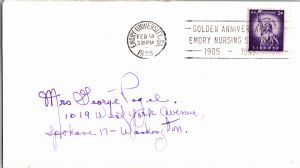 EMORY UNIVERSITY, GA.
FEB 18
PM
1955
GOLDEN ANNIVERSARY
EMORY NURSING
1905 - 1955
LIBERTY
3¢
Mrs George Pagel.
1019 West York Avenue,
Spokane 17 - Washington.